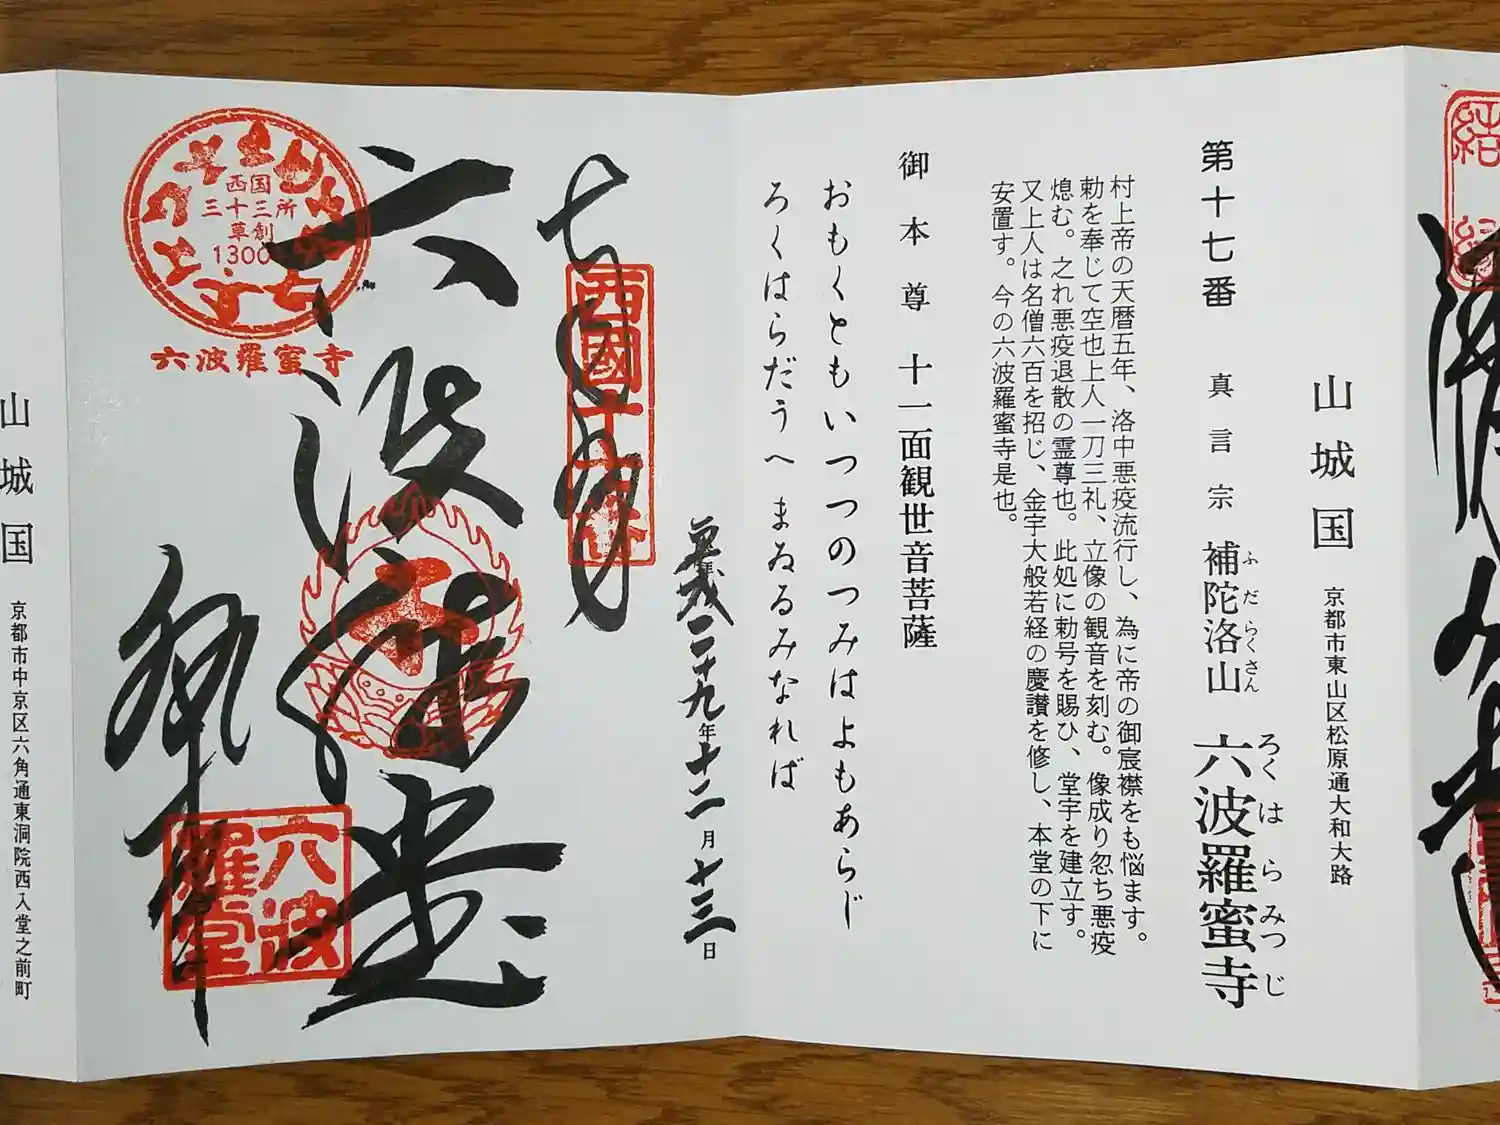 結
山城国
京都市東山区松原通大和大路
第十七番 真言宗 補陀洛山 六波羅蜜寺
ふだらくさん ろくはらみつじ
村上帝の天暦五年、洛中悪疫流行し、為に帝の御宸襟をも悩ます。
勅を奉じて空也上人一刀三礼、立像の観音を刻む。像成り忽ち悪疫
熄む。之れ悪疫退散の霊尊也。此処に勅号を賜ひ、堂宇を建立す。
又上人は名僧六百を招じ、金宇大般若経の慶讃を修し、本堂の下に
安置す。今の六波羅蜜寺是也。
御本尊 十一面観世音菩薩
おもくともいつつのつみはよもあらじ
ろくはらだうへまゐるみなれば
平成二十九年十二月十三日
西國十七番
六波羅蜜
西国
三十三所
草創
1300
六波羅蜜寺
六波
羅堂
山城国
京都市中京区六角通東洞院西入堂之前町